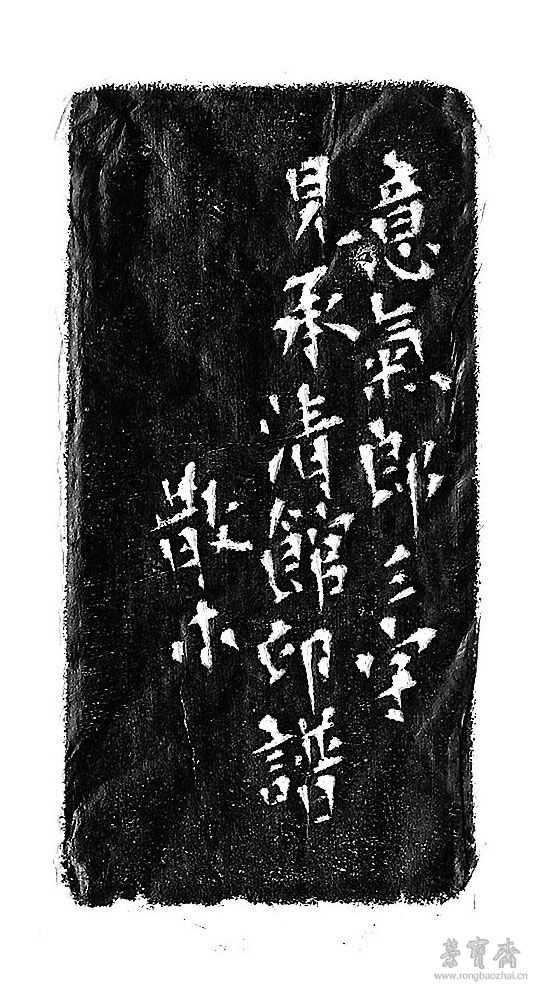 意氣郎三字
見承清館印譜
散木
榮寶齋
www.rongbaozhai.cn